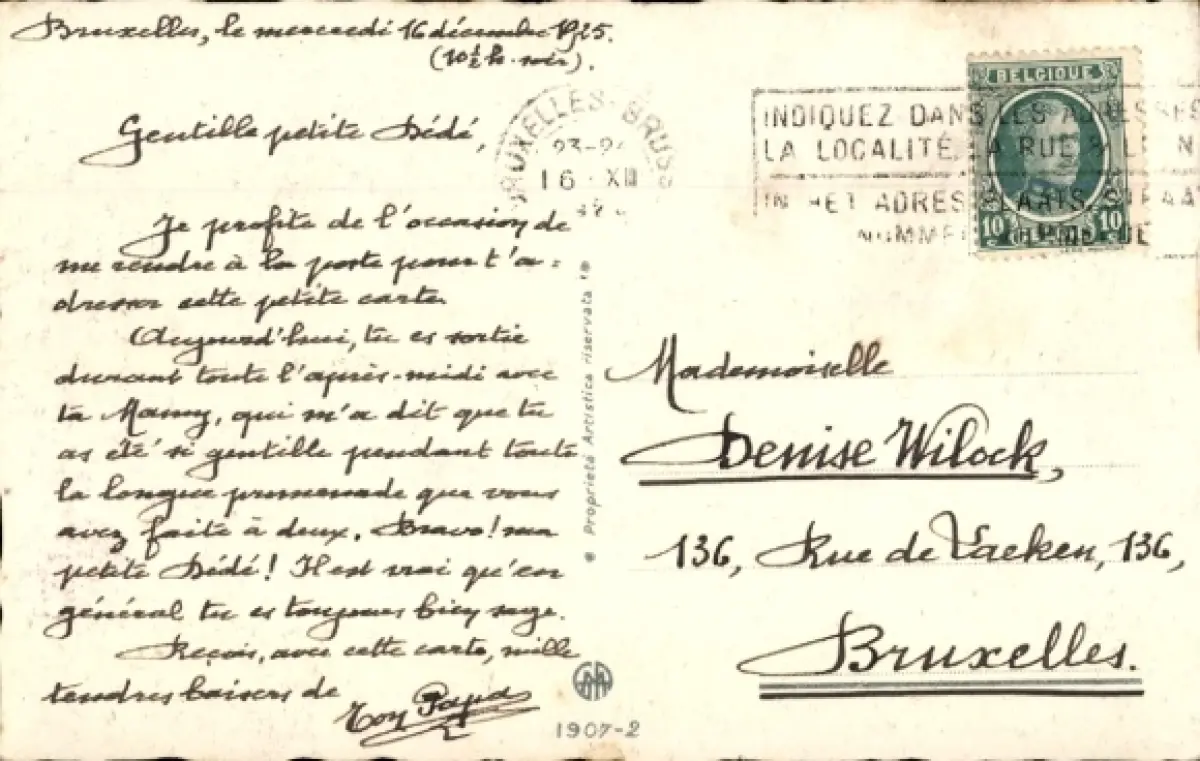 Bruxelles, le mercredi 16 décembre 1925.
(10½ h. soir).
Gentille petite Dédé,
Je profite de l'occasion de
me rendre à la poste pour t'a-
dresser cette petite carte.
Aujourd'hui, tu es sortie
durant toute l'après-midi avec
ta Manny, qui m'a dit que tu
as été si gentille pendant toute
la longue promenade que vous
avez faite à deux. Bravo! ma
petite Dédé! Il est vrai qu'en
général tu es toujours bien sage.
Reçois, avec cette carte, mille
tendres baisers de
Ton Papa
BRUXELLES BRUSS
23-2
16 XII
BELGIQUE
10 10
INDIQUEZ DANS LES ADRESSES
LA LOCALITÉ, LA RUE & LE N
IN HET ADRES PLAATS STRAA
NUMMER
Proprietà Artistica riservata
Mademoiselle
Denise Wilock,
136, Rue de Laeken, 136,
Bruxelles.
1907-2